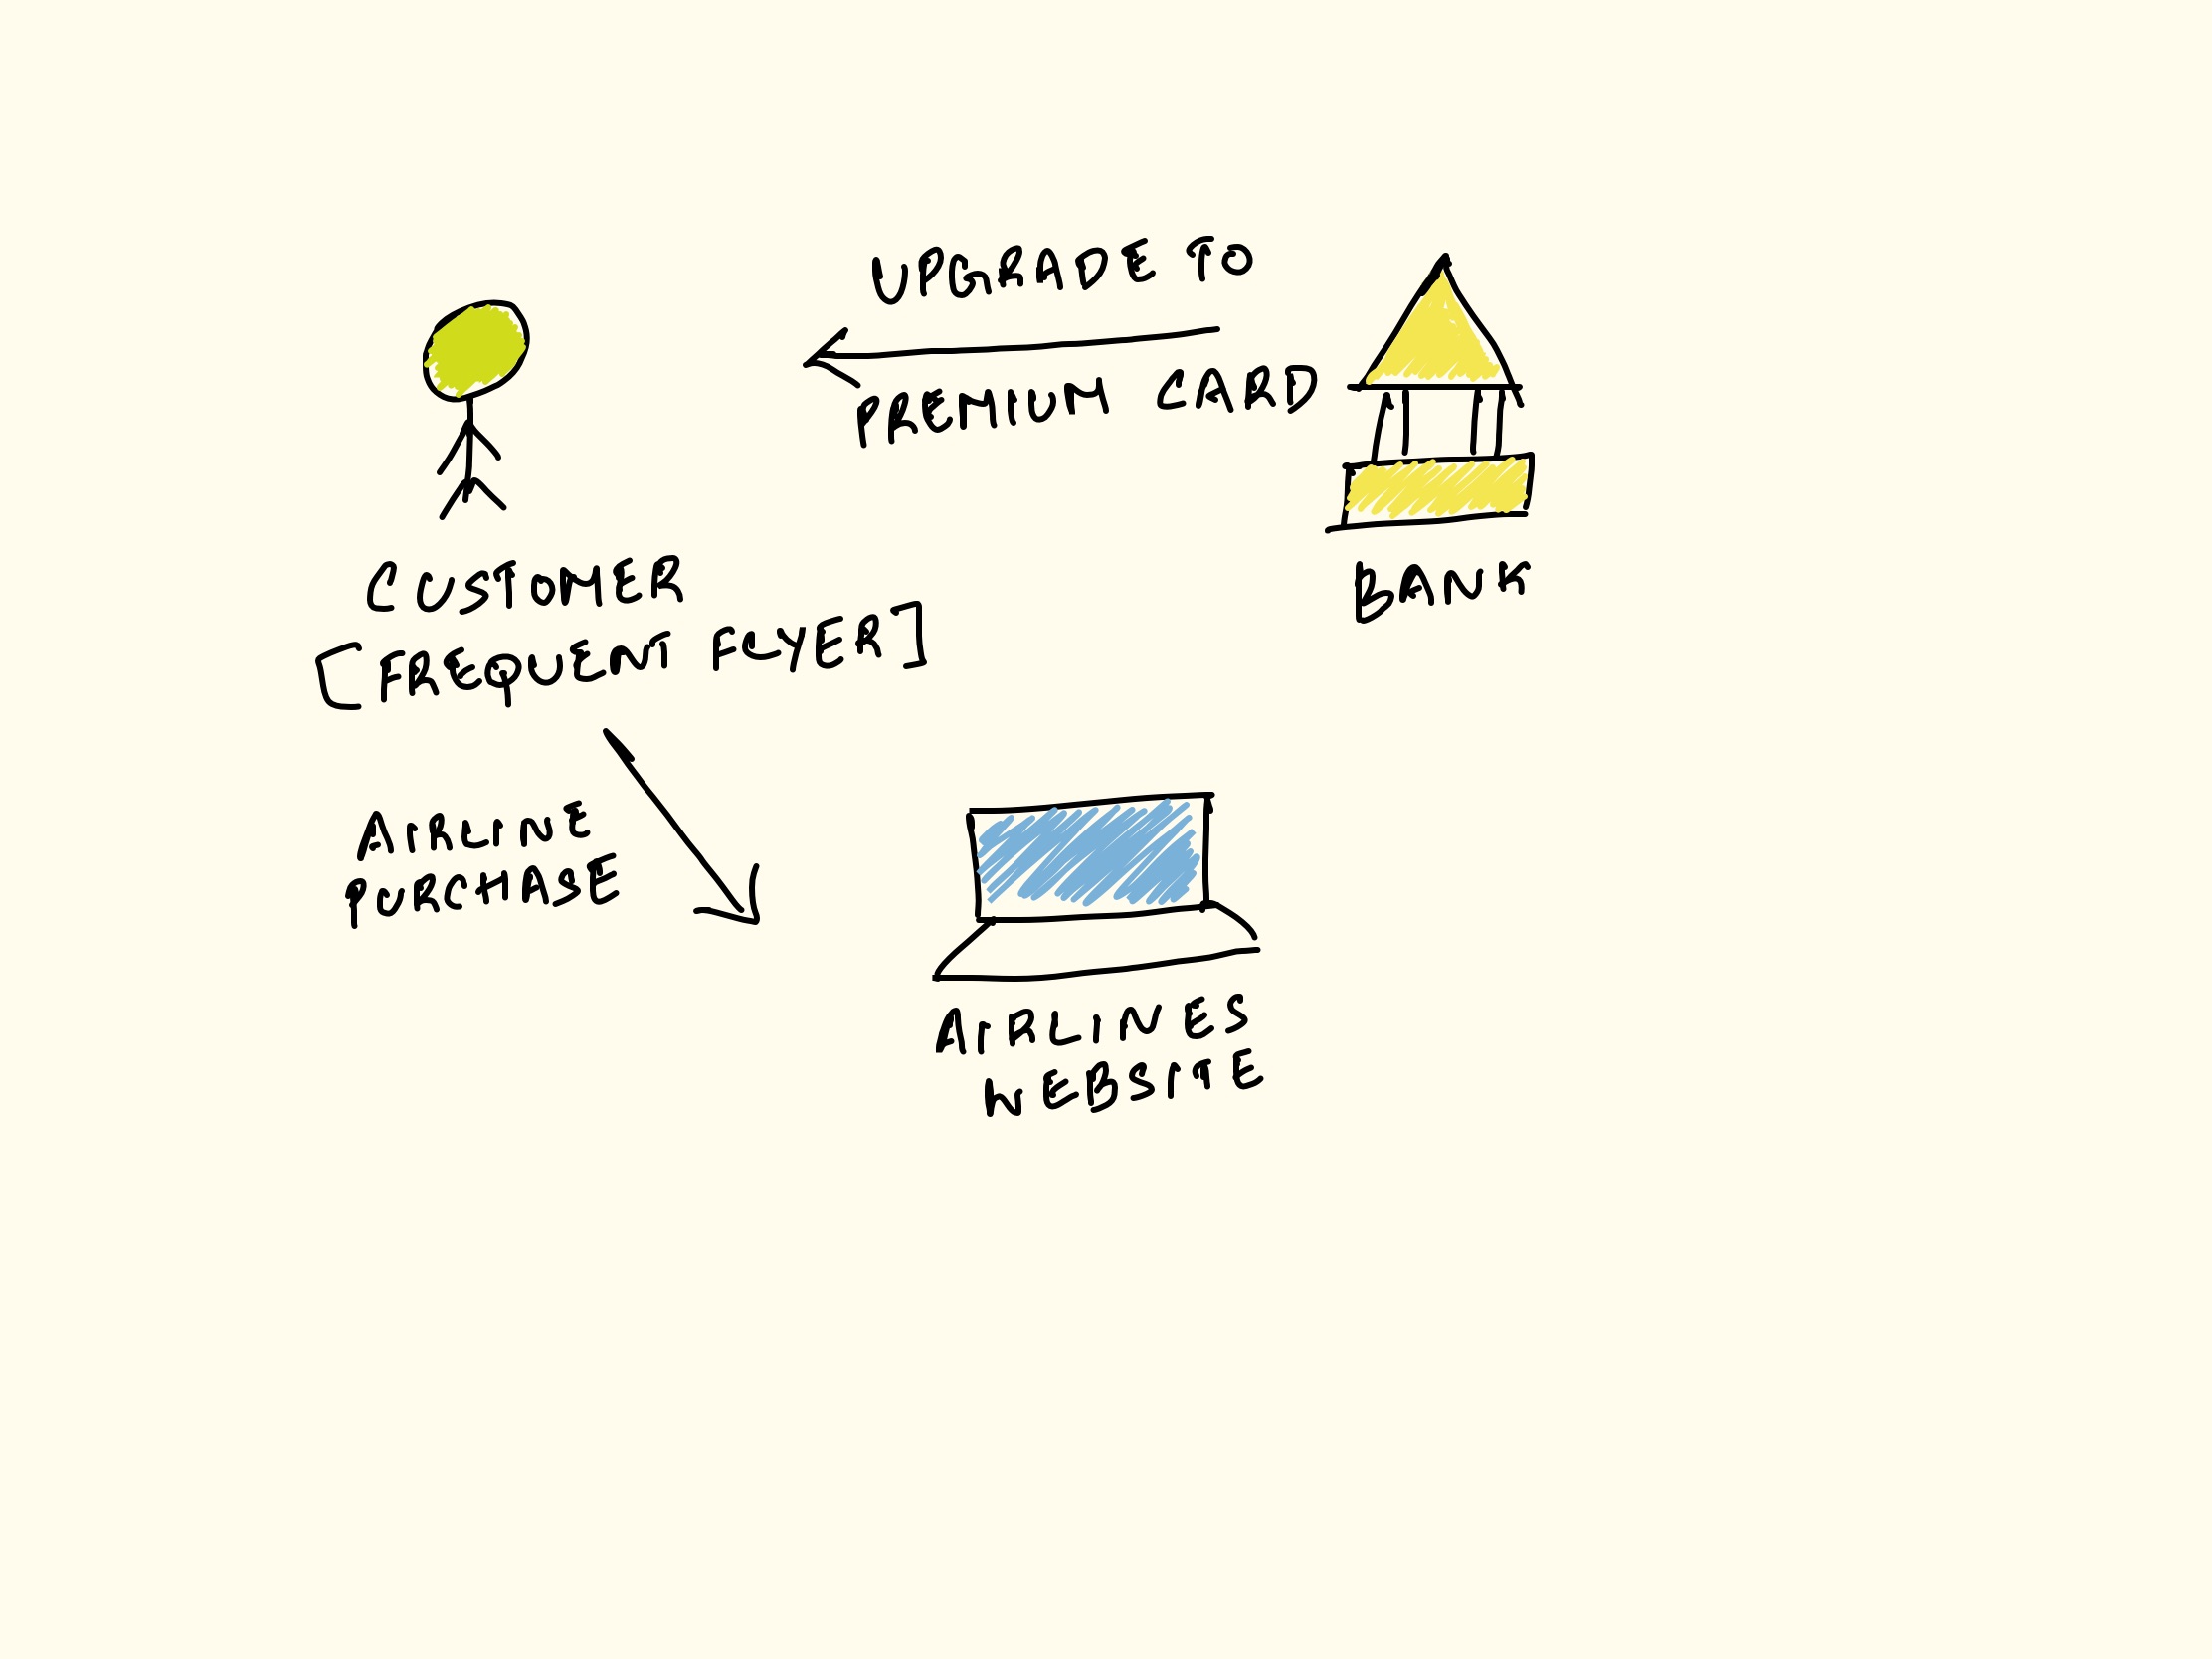 UPGRADE TO
PREMIUM CARD
CUSTOMER
[FREQUENT FLYER]
BANK
AIRLINE
PURCHASE
AIRLINES
WEBSITE